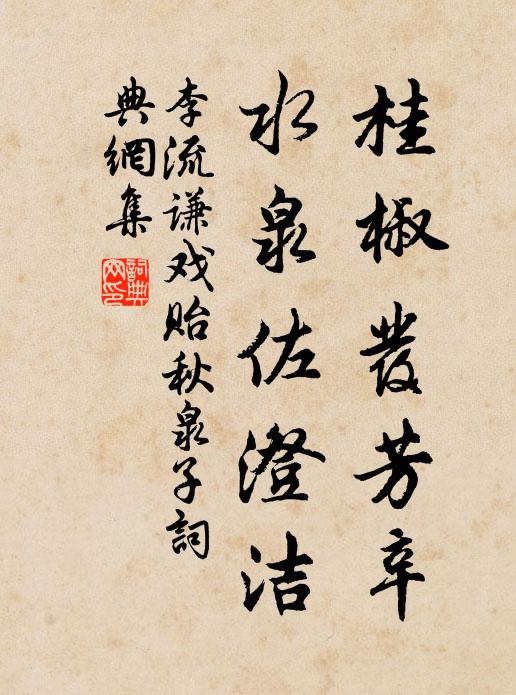 桂椒發芳辛
水泉佐澄洁
李流谦戏贻秋泉子詞
典網集
詞典
网印